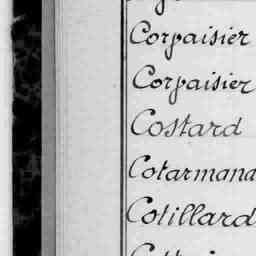 Corpaisier
Corpaisier
Costard
Cotarmana
Cotillard